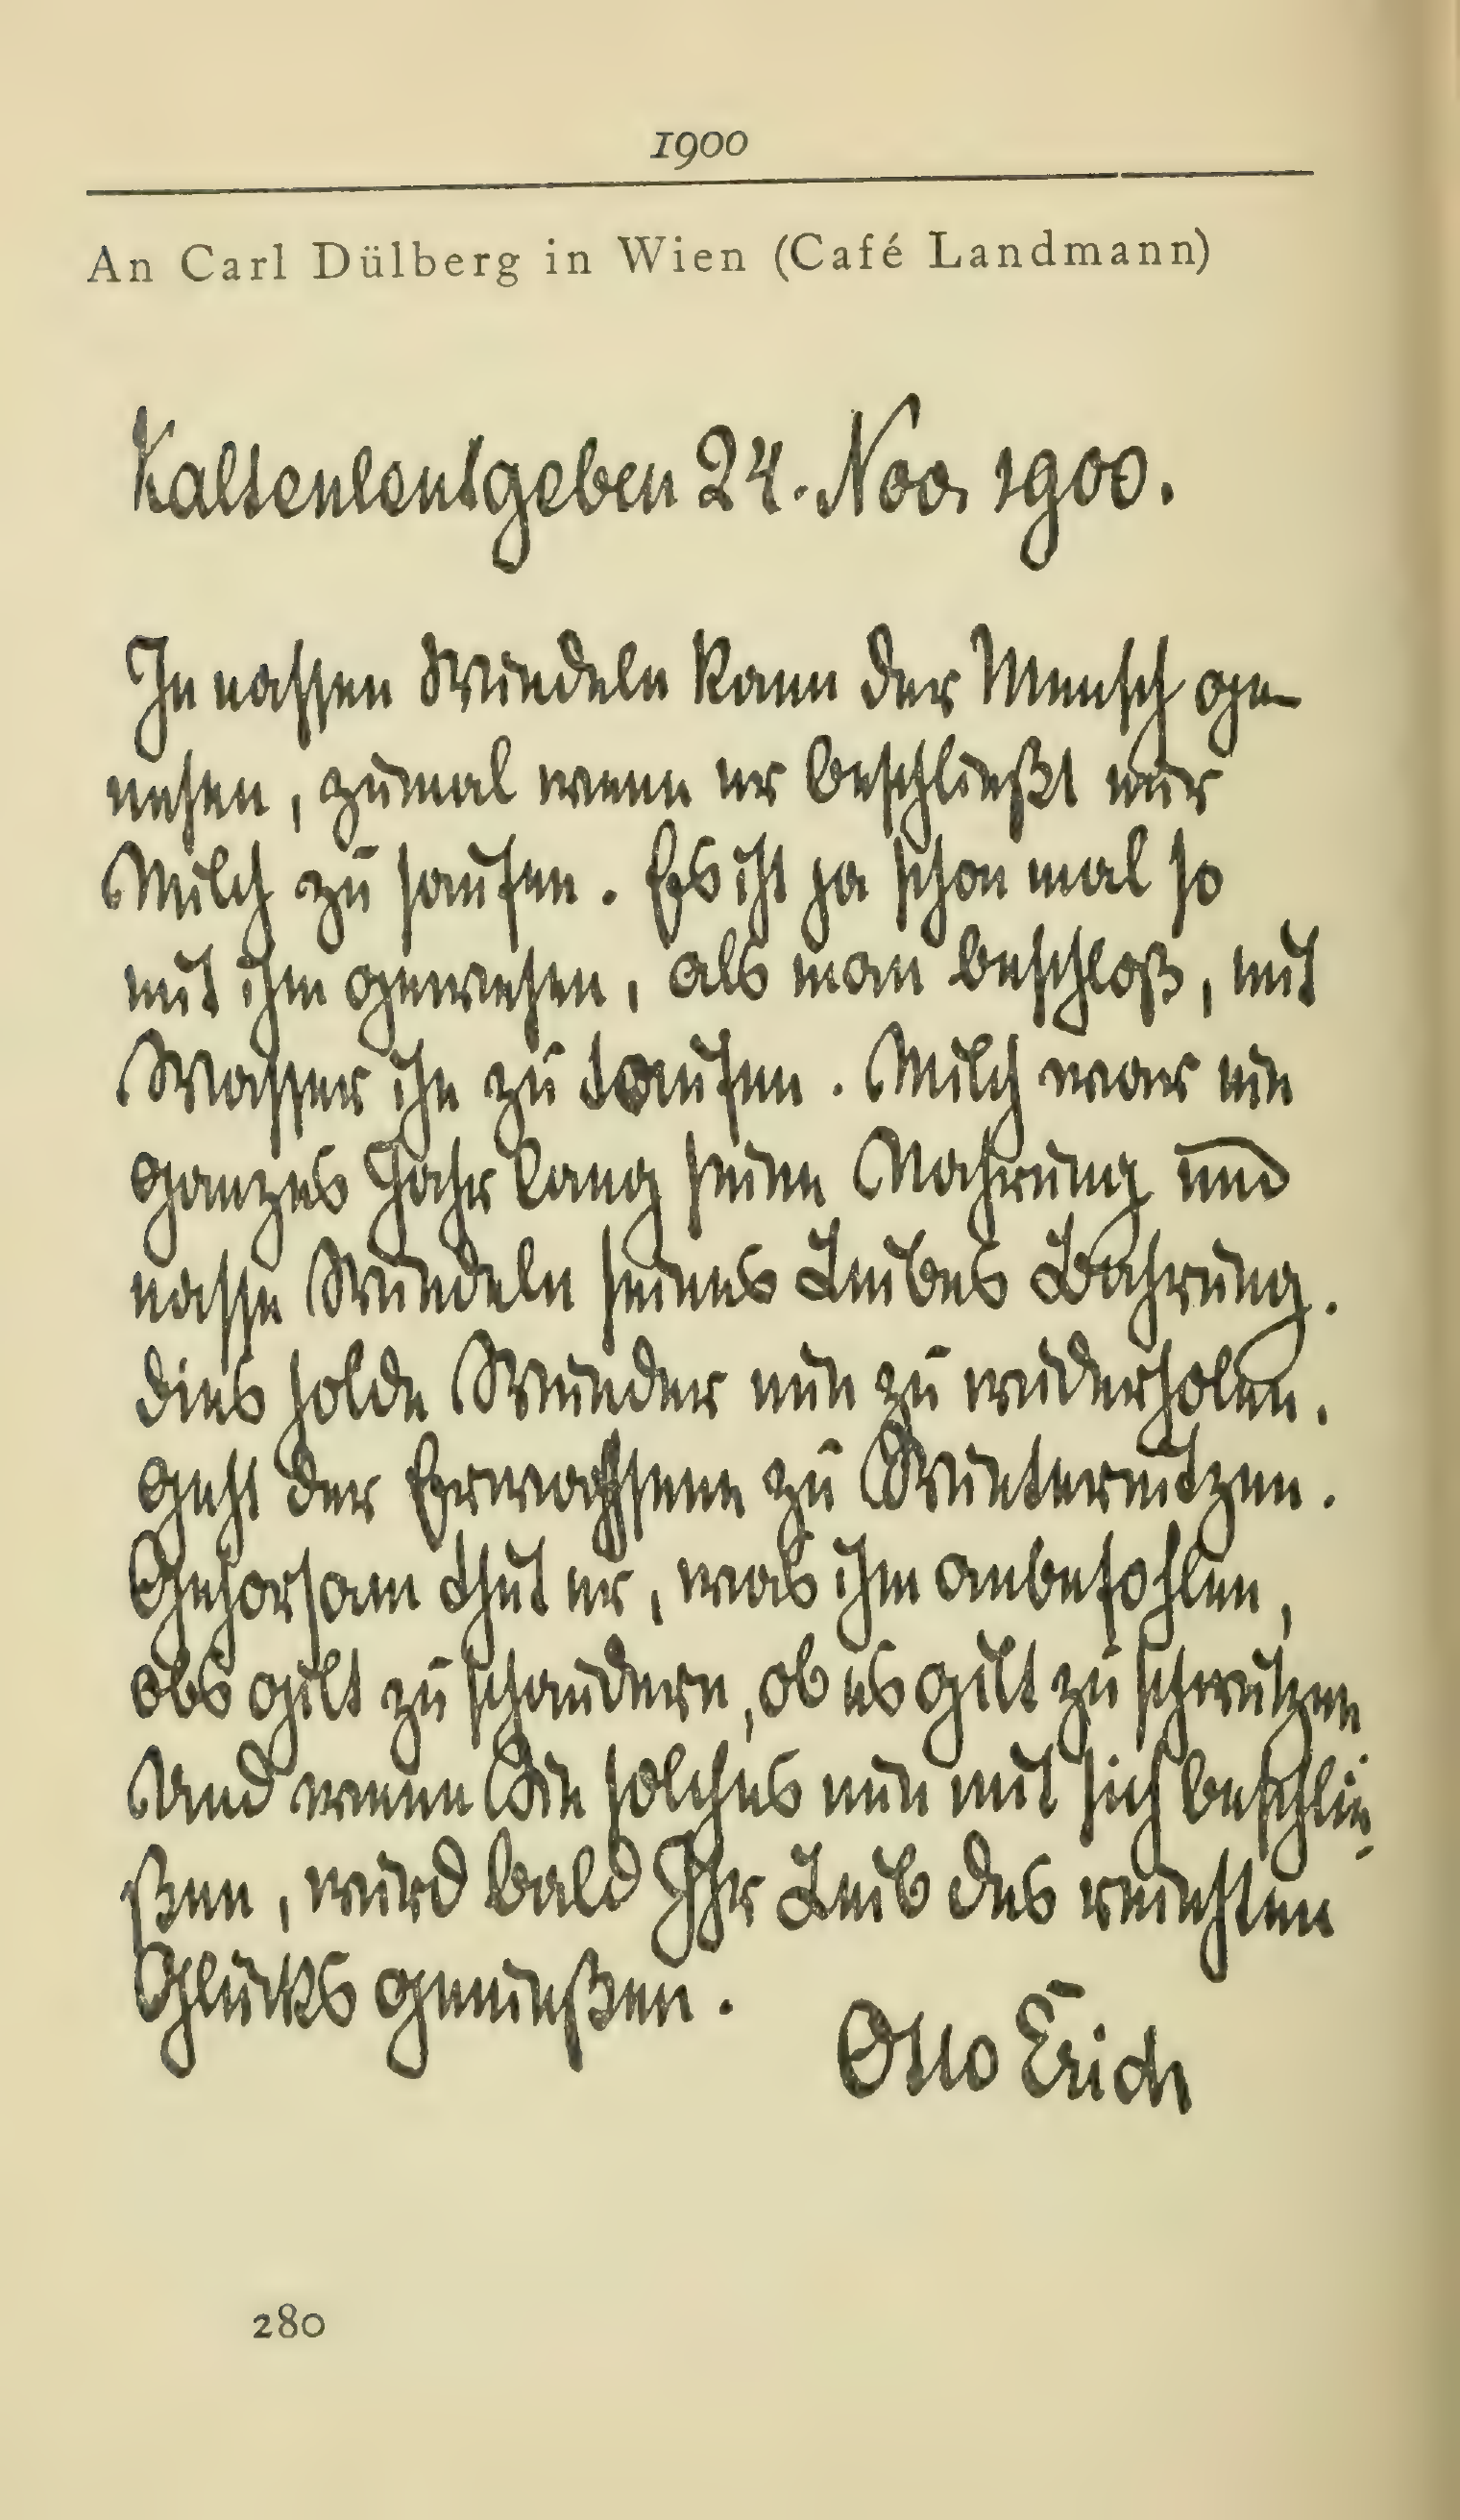 1900
An Carl Dülberg in Wien (Café Landmann)
Kaltenleutgeben 24. Nov. 1900.
In nassen Windeln kann der Mensch ge-
nesen, zumal wenn er beschließt nur
Milch zu saufen. Es ist ja schon mal so
mit ihm gewesen, als man beschloß, mit
Wasser ihn zu taufen. Milch war ein
ganzes Jahr lang seine Nahrung und
nasse Windeln seines Leibes Wahrung.
dies holde Wunder nun zu wiederholen,
geht der Erwachsene zu Winternitzen.
Gehorsam thut er, was ihm anbefohlen,
obs gilt zu schaudern, ob es gilt zu schwitzen
Und wenn Sie solches nun mit sich beschlie-
ßen, wird bald Ihr Leib des reinsten
Glücks genießen.
Otto Erich
280